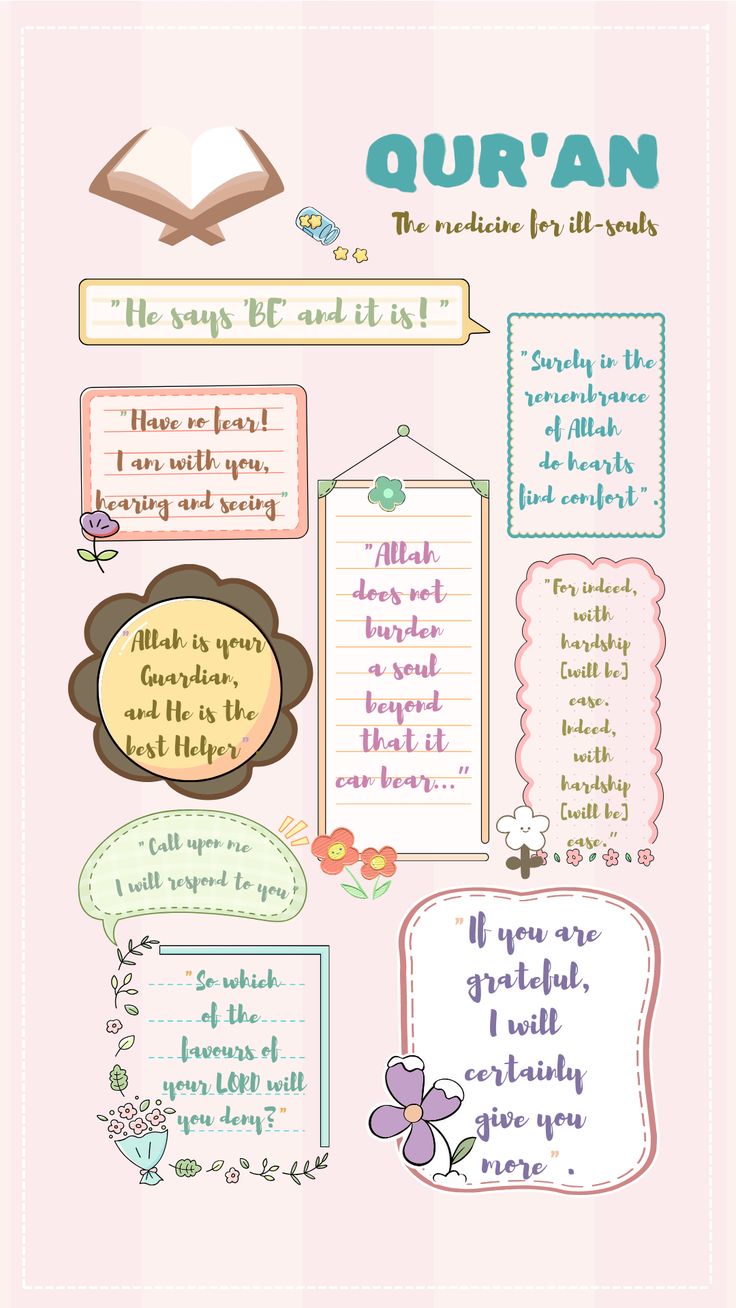 QUR'AN
The medicine for ill-souls
"He says 'BE' and it is! "
"Surely in the
remembrance
of Allah
do hearts
find comfort" .
"Have no fear!
I am with you,
hearing and seeing"
"Allah
does not
burden
a soul
beyond
that it
can bear..."
"For indeed,
with
hardship
[will be]
ease.
Indeed,
with
hardship
[will be]
ease."
"Allah is your
Guardian,
and He is the
best Helper"
"Call upon me
I will respond to you"
"If you are
grateful,
I will
certainly
give you
more" .
"So which
of the
favours of
your LORD will
you deny?"